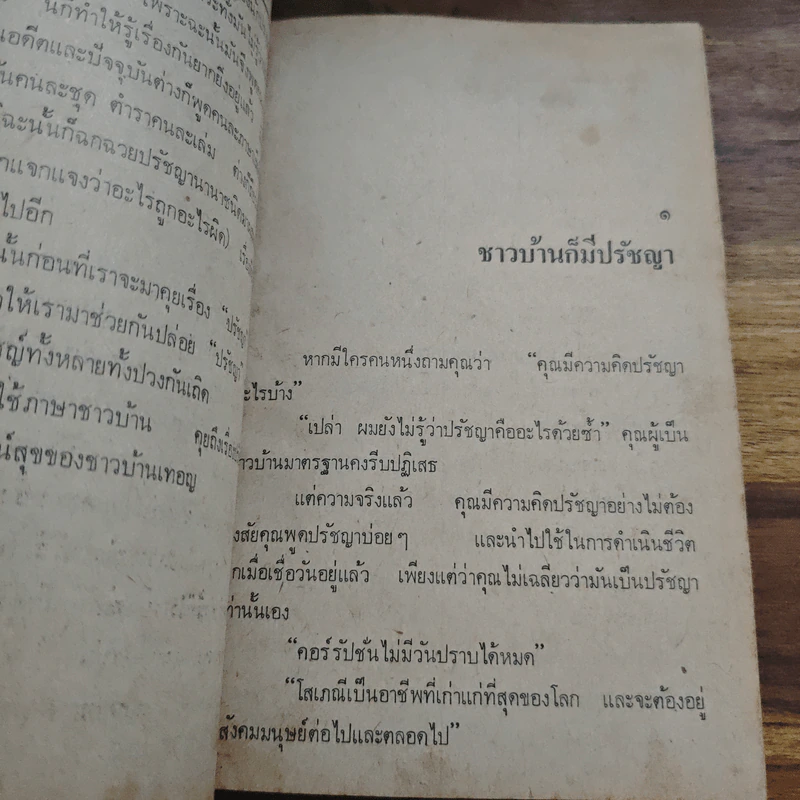 เพราะฉะนั้นมันจึง
นักทำให้รู้เรื่องกันยากยิ่งอยู่แล้ว
อดีตและปัจจุบันต่างก็พูดคนละภาษา
คนละชุด ตำราคนละเล่ม
ฉะนั้นก็ฉกฉวยปรัชญานานาชนิด
แจกแจงว่าอะไรถูกอะไรผิด)
ไปอีก
นั้นก่อนที่เราจะมาคุยเรื่อง “ปรัชญา”
ให้เรามาช่วยกันปล่อย “ปรัชญา”
ทั้งหลายทั้งปวงกันเถิด
ใช้ภาษาชาวบ้าน คุยถึงเรื่อง
สุขของชาวบ้านเทอญ
๑
ชาวบ้านก็มีปรัชญา
หากมีใครคนหนึ่งถามคุณว่า “คุณมีความคิดปรัชญา
อะไรบ้าง”
“เปล่า ผมยังไม่รู้ว่าปรัชญาคืออะไรด้วยซ้ำ” คุณผู้เป็น
ชาวบ้านมาตรฐานคงรีบปฏิเสธ
แต่ความจริงแล้ว คุณมีความคิดปรัชญาอย่างไม่ต้อง
สงสัยคุณพูดปรัชญาบ่อยๆ และนำไปใช้ในการดำเนินชีวิต
ทุกเมื่อเชื่อวันอยู่แล้ว เพียงแต่ว่าคุณไม่เฉลียวว่ามันเป็นปรัชญา
เท่านั้นเอง
“คอร์รัปชั่นไม่มีวันปราบได้หมด”
“โสเภณีเป็นอาชีพที่เก่าแก่ที่สุดของโลก และจะต้องอยู่
สังคมมนุษย์ต่อไปและตลอดไป”